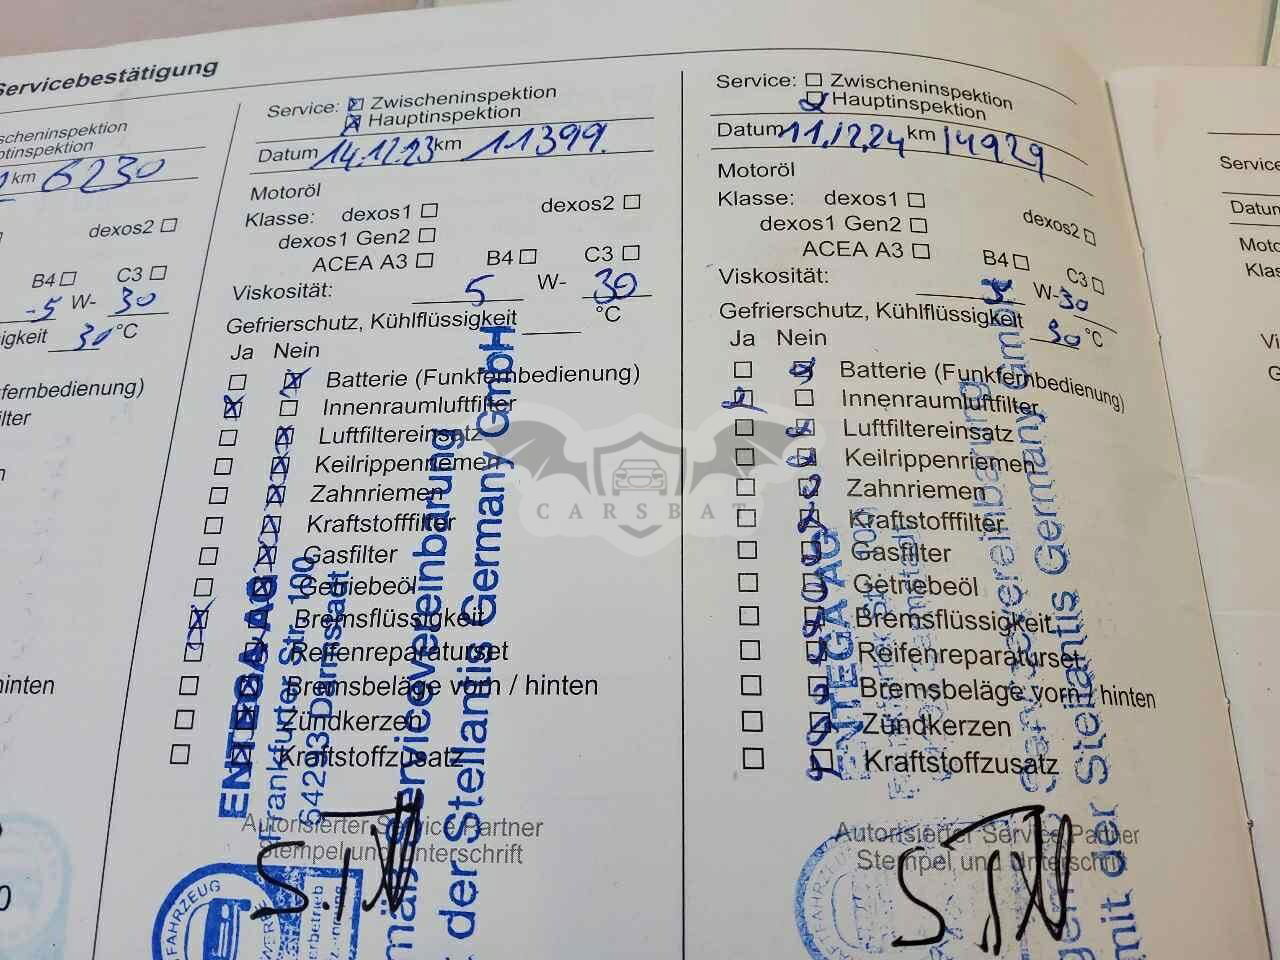 Servicebestätigung
scheninspektion
ptinspektion
km 6230
dexos2
B4 C3
5 W- 30
igkeit 30 °C
fernbedienung)
ilter
hinten
Service: Zwischeninspektion
Hauptinspektion
Datum 14.12.23 km 11399.
Motoröl
Klasse: dexos1 dexos2
dexos1 Gen2
ACEA A3 B4 C3
Viskosität: 5 W- 30
Gefrierschutz, Kühlflüssigkeit °C
Ja Nein
Batterie (Funkfernbedienung)
Innenraumluftfilter
Luftfiltereinsatz
Keilrippenriemen
Zahnriemen
Kraftstofffilter
Gasfilter
Getriebeöl
Bremsflüssigkeit
Reifenreparaturset
Bremsbeläge vorn / hinten
Zündkerzen
Kraftstoffzusatz
Autorisierter Service Partner
Stempel und Unterschrift
ENTEGA AG
Frankfurter Str. 100
64293 Darmstadt
mäß Servicevereinbarung
der Stellantis Germany GmbH
FAHRZEUG
Service: Zwischeninspektion
Hauptinspektion
Datum 11.12.24 km 14929
Motoröl
Klasse: dexos1 dexos2
dexos1 Gen2
ACEA A3 B4 C3
Viskosität: 5 W-30
Gefrierschutz, Kühlflüssigkeit 30 °C
Ja Nein
Batterie (Funkfernbedienung)
Innenraumluftfilter
Luftfiltereinsatz
Keilrippenriemen
Zahnriemen
Kraftstofffilter
Gasfilter
Getriebeöl
Bremsflüssigkeit
Reifenreparaturset
Bremsbeläge vorn / hinten
Zündkerzen
Kraftstoffzusatz
Autorisierter Service Partner
Stempel und Unterschrift
ENTEGA AG
Servicevereinbarung
mit der Stellantis Germany GmbH
Service
Datum
Moto
Klas
Vi
G
CARSBAT